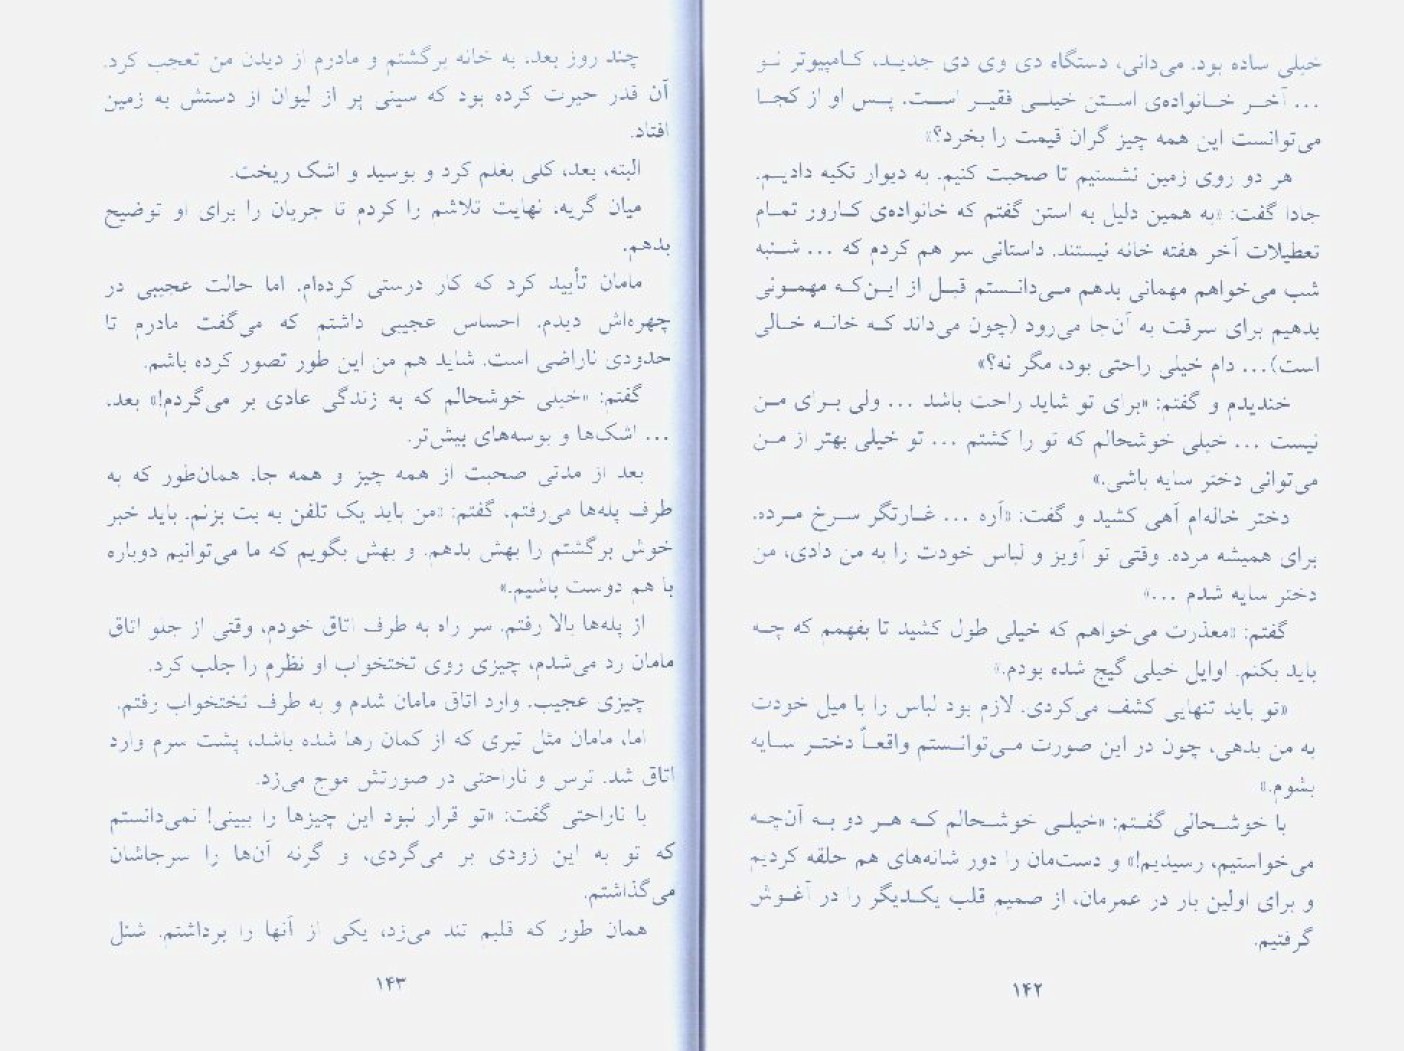 خیلی ساده بود. می‌دانی، دستگاه دی وی دی جدیـد، کـامپیوتر نـو
... آخـر خـانواده‌ی اسـتن خیلـی فقیـر اسـت. پـس او از کجـا
می‌توانست این همه چیز گران قیمت را بخرد؟»
هر دو روی زمین نشستیم تا صحبت کنیم. به دیوار تکیه دادیـم.
جادا گفت: «به همین دلیل به استن گفتم که خانواده‌ی کـارور تمـام
تعطیلات آخر هفته خانه نیستند. داستانی سر هم کردم که ... شـنبه
شب می‌خواهم مهمانی بدهم مـی‌دانـستم قبـل از ایـن‌کـه مهمـونی
بدهیم برای سرقت به آن‌جا می‌رود (چون می‌داند کـه خانـه خـالی
است)... دام خیلی راحتی بود، مگر نه؟»
خندیدم و گفتم: «برای تو شاید راحت باشد ... ولی بـرای مـن
نیست ... خیلی خوشحالم که تو را کشتم ... تو خیلی بهتر از مـن
می‌توانی دختر سایه باشی.»
دختر خاله‌ام آهی کشید و گفت: «آره ... غـارتگر سـرخ مـرده.
برای همیشه مرده. وقتی تو آویز و لباس خودت را به من دادی، من
دختر سایه شدم ...»
گفتم: «معذرت می‌خواهم که خیلی طول کشید تا بفهمم که چـه
باید بکنم. اوایل خیلی گیج شده بودم.»
«تو باید تنهایی کشف می‌کردی. لازم بود لباس را با میل خودت
به من بدهی، چون در این صورت مـی‌توانـستم واقعـاً دختـر سـایه
بشوم.»
با خوشـحالی گفـتم: «خیلـی خوشـحالم کـه هـر دو بـه آن‌چـه
می‌خواستیم، رسیدیم!» و دست‌مان را دور شانه‌های هم حلقه کردیم
و برای اولین بار در عمرمان، از صمیم قلب یکـدیگر را در آغـوش
گرفتیم.
۱۴۲
چند روز بعد، به خانه برگشتم و مادرم از دیدن من تعجب کرد.
آن قدر حیرت کرده بود که سینی پر از لیوان از دستش به زمین
افتاد.
البته، بعد، کلی بغلم کرد و بوسید و اشک ریخت.
میان گریه، نهایت تلاشم را کردم تا جریان را برای او توضیح
بدهم.
مامان تأیید کرد که کار درستی کرده‌ام. اما حالت عجیبی در
چهره‌اش دیدم. احساس عجیبی داشتم که می‌گفت مادرم تا
حدودی ناراضی است. شاید هم من این طور تصور کرده باشم.
گفتم: «خیلی خوشحالم که به زندگی عادی بر می‌گردم!» بعد،
... اشک‌ها و بوسه‌های بیش‌تر.
بعد از مدتی صحبت از همه چیز و همه جا، همان‌طور که به
طرف پله‌ها می‌رفتم، گفتم: «من باید یک تلفن به بت بزنم. باید خبر
خوش برگشتم را بهش بدهم. و بهش بگویم که ما می‌توانیم دوباره
با هم دوست باشیم.»
از پله‌ها بالا رفتم. سر راه به طرف اتاق خودم، وقتی از جلو اتاق
مامان رد می‌شدم، چیزی روی تختخواب او نظرم را جلب کرد.
چیزی عجیب. وارد اتاق مامان شدم و به طرف تختخواب رفتم.
اما، مامان مثل تیری که از کمان رها شده باشد، پشت سرم وارد
اتاق شد. ترس و ناراحتی در صورتش موج می‌زد.
با ناراحتی گفت: «تو قرار نبود این چیزها را ببینی! نمی‌دانستم
که تو به این زودی بر می‌گردی، و گرنه آن‌ها را سرجاشان
می‌گذاشتم.
همان طور که قلبم تند می‌زد، یکی از آنها را برداشتم. شنل
۱۴۳